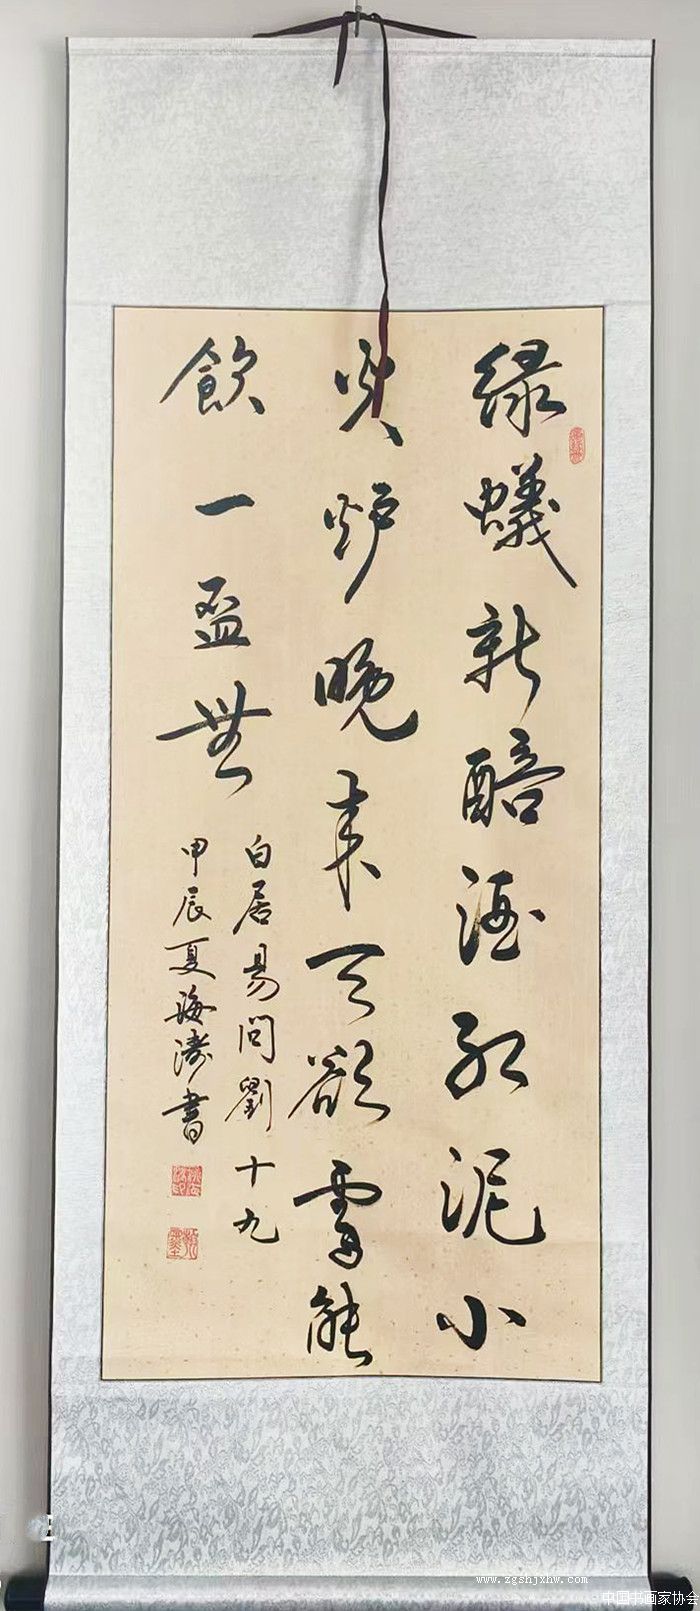 绿蟻新醅酒红泥小
火炉晚来天欲雪能
飲一盃無
白居易問劉十九
甲辰夏海濤書
www.zgshjxhw.com
中国书画家协会